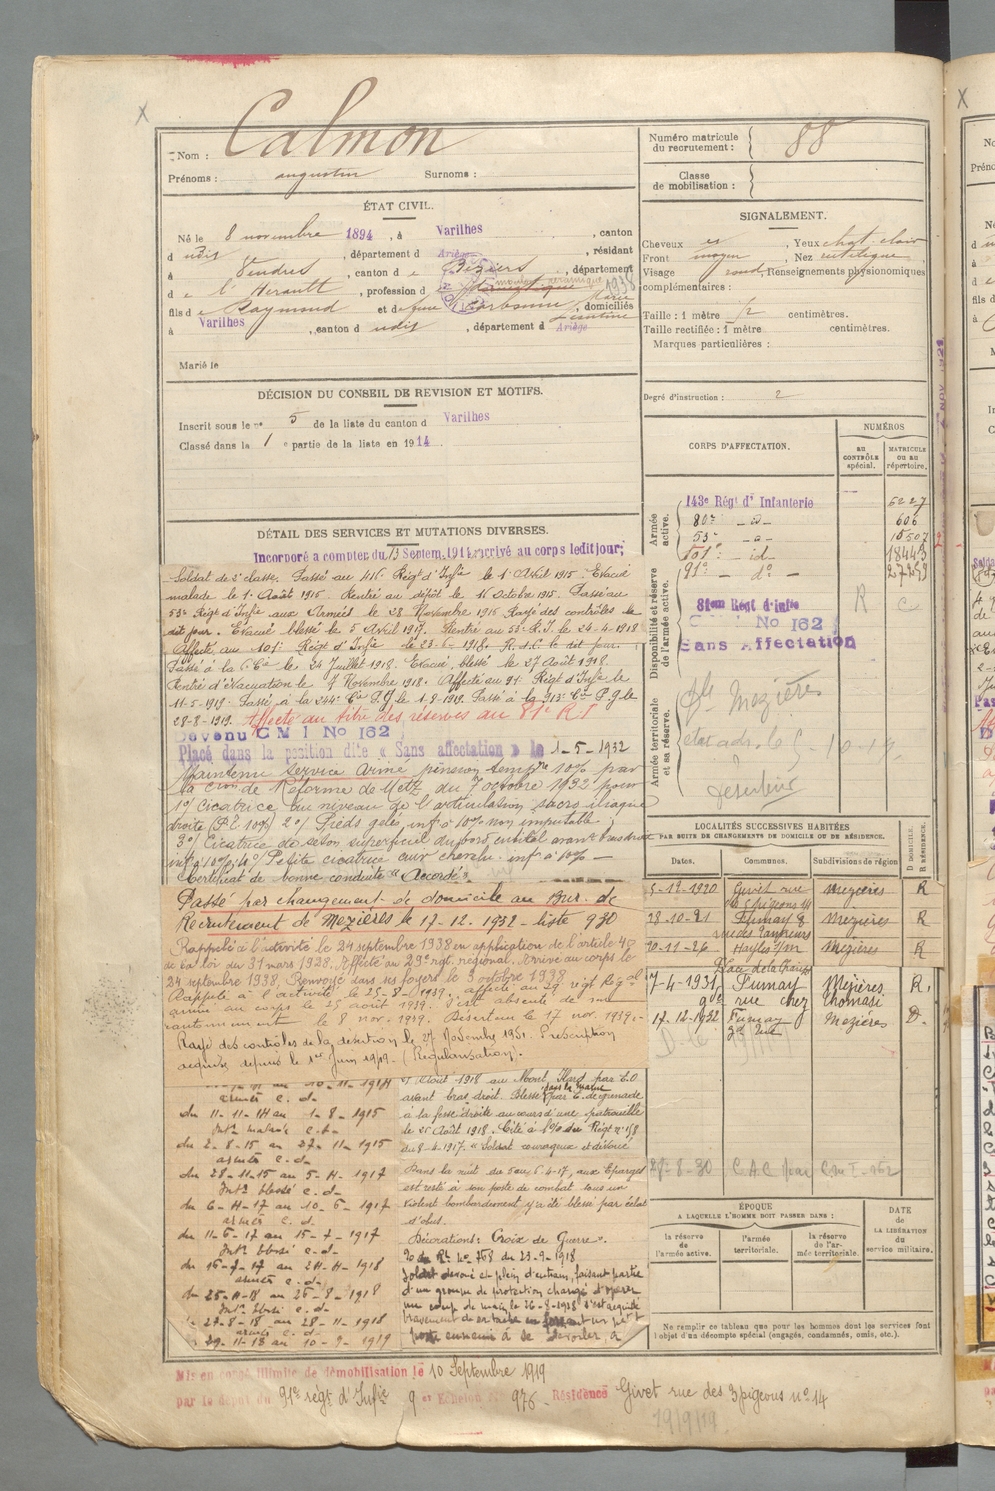 Nom : Calmon
Prénoms : augustin Surnoms :
Numéro matricule du recrutement : 88
Classe de mobilisation :
ÉTAT CIVIL.
Né le 8 novembre 1894, à Varilhes, canton
d udis, département d Ariège, résidant
à Vendres, canton d e Béziers, département
d e l'Hérault, profession d
fils d e Raymond et d e feue Narbonne Marie Léontine, domiciliés
à Varilhes, canton d udis, département d Ariège
Marié le
SIGNALEMENT.
Cheveux Yeux chat. clair
Front moyen, Nez rectiligne
Visage rond Renseignements physionomiques
complémentaires :
Taille : 1 mètre 72 centimètres.
Taille rectifiée : 1 mètre centimètres.
Marques particulières :
Degré d'instruction : 2
DÉCISION DU CONSEIL DE REVISION ET MOTIFS.
Inscrit sous le nº 5 de la liste du canton d Varilhes
Classé dans la 1 e partie de la liste en 1914.
CORPS D'AFFECTATION.
NUMÉROS
AU CONTRÔLE spécial.
MATRICULE ou au répertoire.
Armée active.
143e Régt d'Infanterie 6227
80e - d - 606
53e - d - 10507
101e id 18443
91e - do - 27259
Disponibilité et réserve de l'armée active.
81eme Régt d'Infie R C
C M I No 162
Sans Affectation
Armée territoriale et sa réserve.
Mezières
déserteur
DÉTAIL DES SERVICES ET MUTATIONS DIVERSES.
Incorporé a compter du 13 Septem. 1914, arrivé au corps ledit jour;
Soldat de 2e classe. Passé au 416e Régt d'Infie le 1er Avril 1915. Evacué
malade le 1er Août 1915. Rentré au dépôt le 16 Octobre 1915. Passé au
53e Régt d'Infie aux Armées le 28 Novembre 1915 Rayé des contrôles le
dit jour. Evacué blessé le 5 Avril 1917. Rentré au 53e R.I. le 24-4-1918
Affecté au 101e Régt d'Infie le 23-6-1918. R.d.C. le dit jour.
Passé à la Cie le 24 Juillet 1918. Evacué, blessé le 27 Août 1918.
Rentré d'évacuation le Novembre 1918. Affecté au 91e Régt d'Infie le
11-5-1919. Passé à la 244e Cie P.G le 1-8-1919. Passé à la 913e Cie P.G le
28-8-1919. Affecté au titre des réserves au 81e R I
Devenu C M I No 162
Placé dans la position dite « Sans affectation » le 1-5-1932
Maintenu Service Armé pension tempre 10% par
la Cion de Réforme de Metz du 7 octobre 1932 pour
1º/ Cicatrice au niveau de l'articulation sacro iliaque
droite (P.T. 10%) 2º/ Pieds gelés inf. à 10% non imputable ;
3º/ Cicatrice de séton superficiel du bord cubital avant bras droit
inf. à 10%; 4º/ Petite cicatrice cuir chevelu inf. à 10% —
Certificat de bonne conduite « Accordé ».
Passé par changement de domicile au Bur. de
Recrutement de Mézières le 17-12-1932 - liste 930
Rappelé à l'activité le 24 septembre 1938 en application de l'article 40
de la loi du 31 mars 1928. Affecté au 29e rgt régional. Arrivé au corps le
24 septembre 1938. Renvoyé dans ses foyers le 3 octobre 1938
Rappelé à l'activité le 25-8-1939, affecté au 29 régt Régal
arrivé au corps le 25 août 1939. s'est absenté de son
cantonnement le 8 nov. 1939. Déserteur le 17 nov. 1939.
Rayé des contrôles de la désertion le 27 Novembre 1951. Prescription
acquise depuis le 1er Juin 1949. (Régularisation).
LOCALITÉS SUCCESSIVES HABITÉES
PAR SUITE DE CHANGEMENTS DE DOMICILE OU DE RÉSIDENCE.
Dates. Communes. Subdivisions de région D DOMICILE. R RÉSIDENCE.
5-12-1920 Givet rue des 3 pigeons 14 Mézières R
28-10-21 Fumay 8 rue des Tanneurs Mézières R
20-11-26 Haybes s/m Place de la Mézières R
7-4-1931 Fumay gde rue chez Thomasi Mézières R.
17-12-1932 Fumay gde rue Mézières D.
27-8-30 C.A.C. pour C.M.I. 162
armée c.d.
du 11-11-14 au 1-8-1915
Intr malade c.d.
du 2-8-15 au 27-11-1915
armée c.d.
du 28-11-15 au 5-4-1917
Intr blessé c.d.
du 6-4-17 au 10-6-1917
armée c.d.
du 11-6-17 au 15-7-1917
Intr blessé c.d.
du 16-7-17 au 24-4-1918
armée c.d.
du 25-4-18 au 26-8-1918
Intr blessé c.d.
27-8-18 au 28-11-1918
armée c.d.
29-11-18 au 10-9-1919
Août 1918 au Mont par E.O
avant bras droit. Blessé par E. de grenade
à la fesse droite au cours d'une patrouille
le 26 Août 1918. Cité à l'O/ du Régt nº 158
du 8-4-1917. « Soldat courageux et dévoué
Dans la nuit du 5 au 6-4-17, aux Eparges
est resté à son poste de combat sous un
violent bombardement, y a été blessé par éclat
d'obus.
Décorations : Croix de Guerre ».
O du Rt No 768 du 23-9-1918
Soldat dévoué et plein d'entrain, faisant partie
d'un groupe de protection chargé d'opérer
un coup de main le 26-8-1918 s'est acquitté
bravement de sa tâche en forçant un petit
poste ennemi à se dévoiler, a
ÉPOQUE
A LAQUELLE L'HOMME DOIT PASSER DANS :
la réserve de l'armée active.
l'armée territoriale.
la réserve de l'armée territoriale.
DATE de LA LIBÉRATION du service militaire.
Ne remplir ce tableau que pour les hommes dont les services font l'objet d'un décompte spécial (engagés, condamnés, omis, etc.).
Mis en congé illimité de démobilisation le 10 Septembre 1919
par le dépôt du 91e régt d'Infie 9 er Echelon No 976 - Résidence Givet rue des 3 pigeons no 14
19/9/19